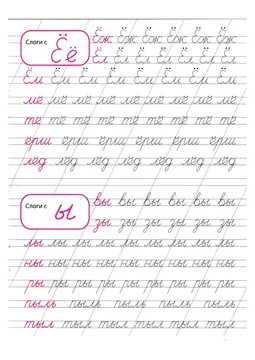 Слоги с Ёё
Ёж Ёж Ёж Ёж Ёж Ёж
Ёл Ёл Ёл Ёл Ёл Ёл
Ём Ём Ём Ём Ём Ём Ём
мё мё мё мё мё мё мё
тё тё тё тё тё тё тё
ёрш ёрш ёрш ёрш ёрш ёрш
лёд лёд лёд лёд лёд лёд лёд
Слоги с ы
вы вы вы вы вы вы
зы зы зы зы зы зы
лы лы лы лы лы лы лы
ны ны ны ны ны ны ны
ры ры ры ры ры ры ры
пыль пыль пыль пыль пыль
тыл тыл тыл тыл тыл тыл